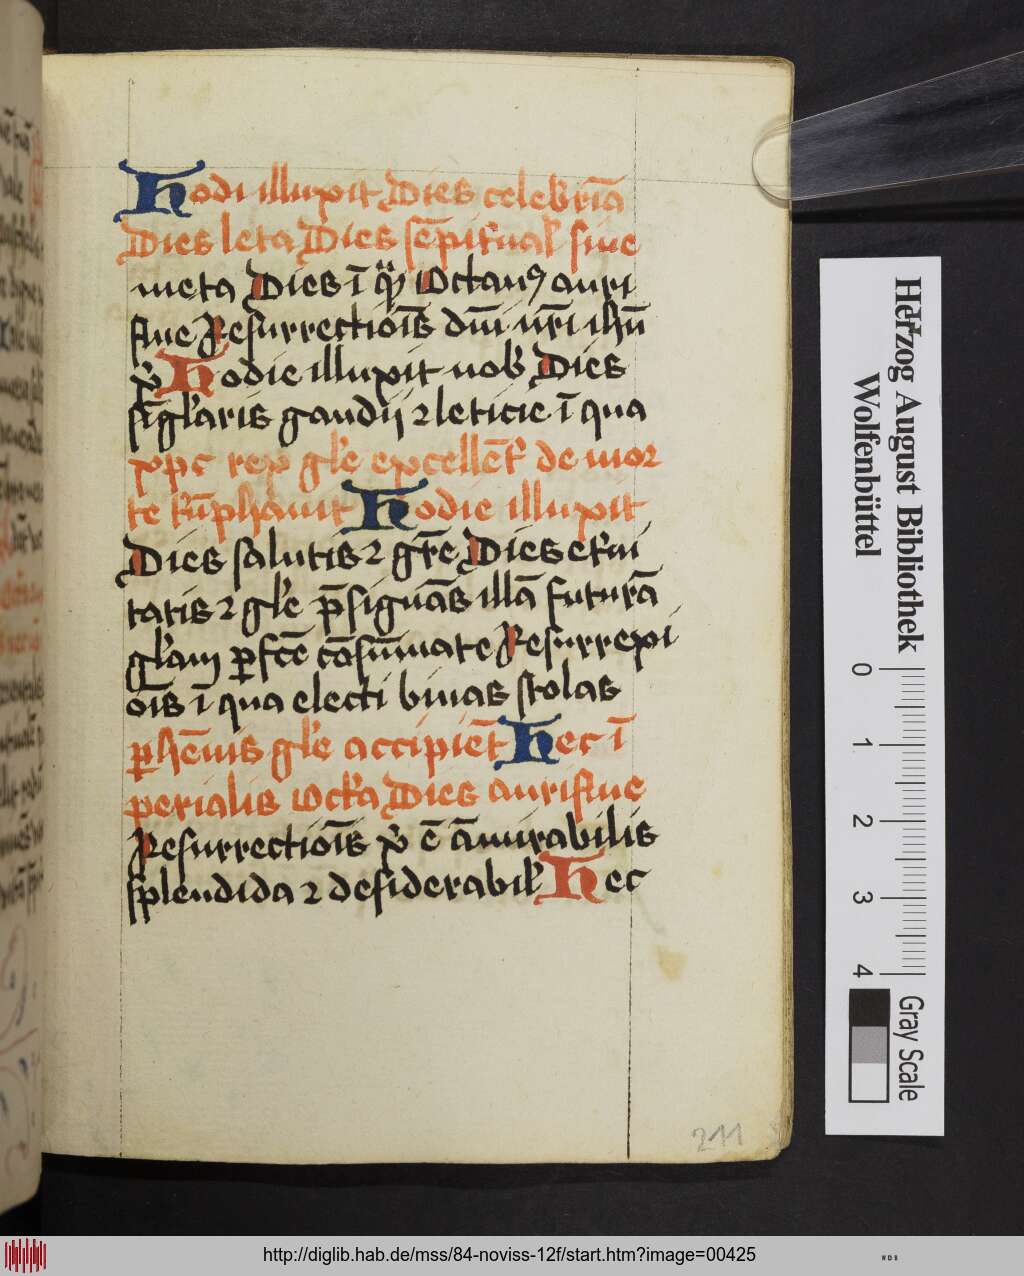 Hodi illuxit Dies celebriā
Dies leta Dies sēpit͛nal͛ siue
meta Dies ī q̄ Octauꝰ auri
siue Resurrectiōis dn̄i nr̄i ihū
xp̄i Hodie illuxit nob͛ Dies
sīgl͛aris gaudij ⁊ leticie ī qua
xpc rex gl͛e excellēt͛ de mor
te t͛ūphauit Hodie illuxit
Dies salutis ⁊ gr̄e Dies et͛ni
tatis ⁊ gl͛e p̄signās illā futurā
gl͛am ꝑfc̄e cōsūmate Resurrexi
ōis ī qua electi binas stolas
ꝑhēnis gl͛e accipiēt Hec ī
perialis octa Dies aurisiue
Resurrectiōis xp̄i ē āmirabilis
splendida ⁊ desiderabil͛ Hec
211
Herzog August Bibliothek
Wolfenbüttel
0 1 2 3 4
Gray Scale
http://diglib.hab.de/mss/84-noviss-12f/start.htm?image=00425